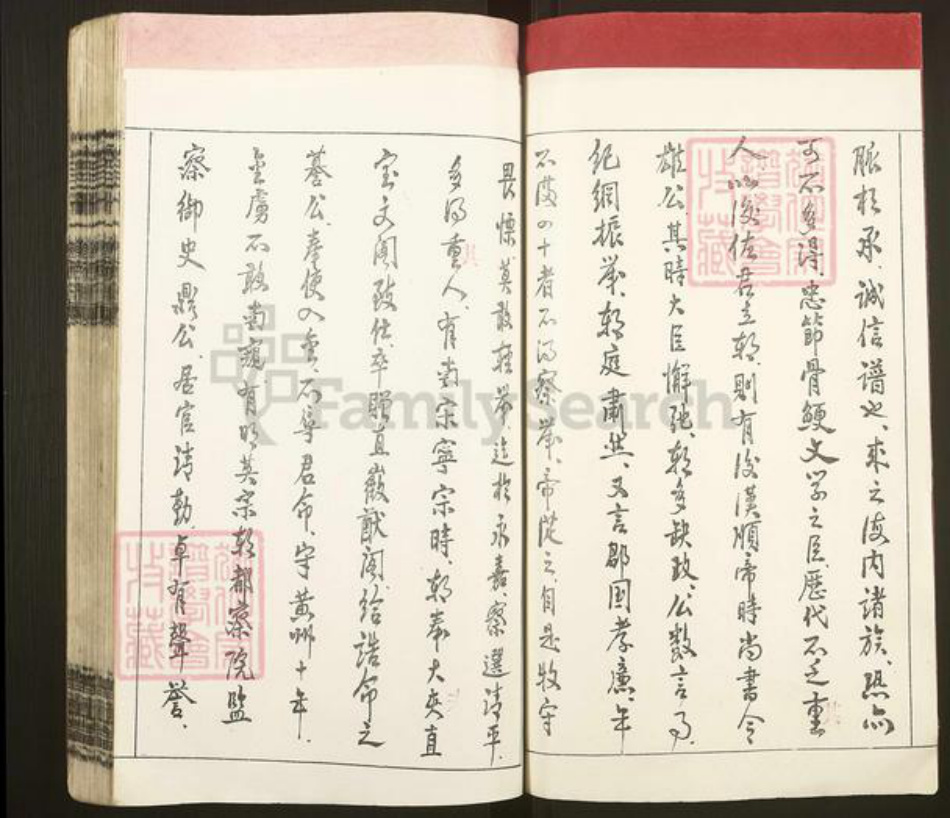 脈相承、誠信譜也、求之海内諸族、恐亦
可不多得、忠節骨鯁文学之臣、歷代不乏重
人、以後佐君立朝、則有後漢順帝時尚書令
雄公、其時大臣懈弛、朝多缺政、公数言事、
紀綱振举、朝庭肅然、又言郡国孝廉、年
不满四十者不得察举、帝從之、自是牧守
畏慄莫敢轻举、迄於永嘉、察選清平、
多得重人、有南宋寧宗時、朝奉大夫直
宝文阁致仕、卒贈直徽猷阁、给誥命之
碁公、奉使入金、不辱君命、守黄州十年、
金虜不敢南窺、有明英宗朝都察院監
察御史鼎公、居官清勤、卓有聲誉、
FamilySearch